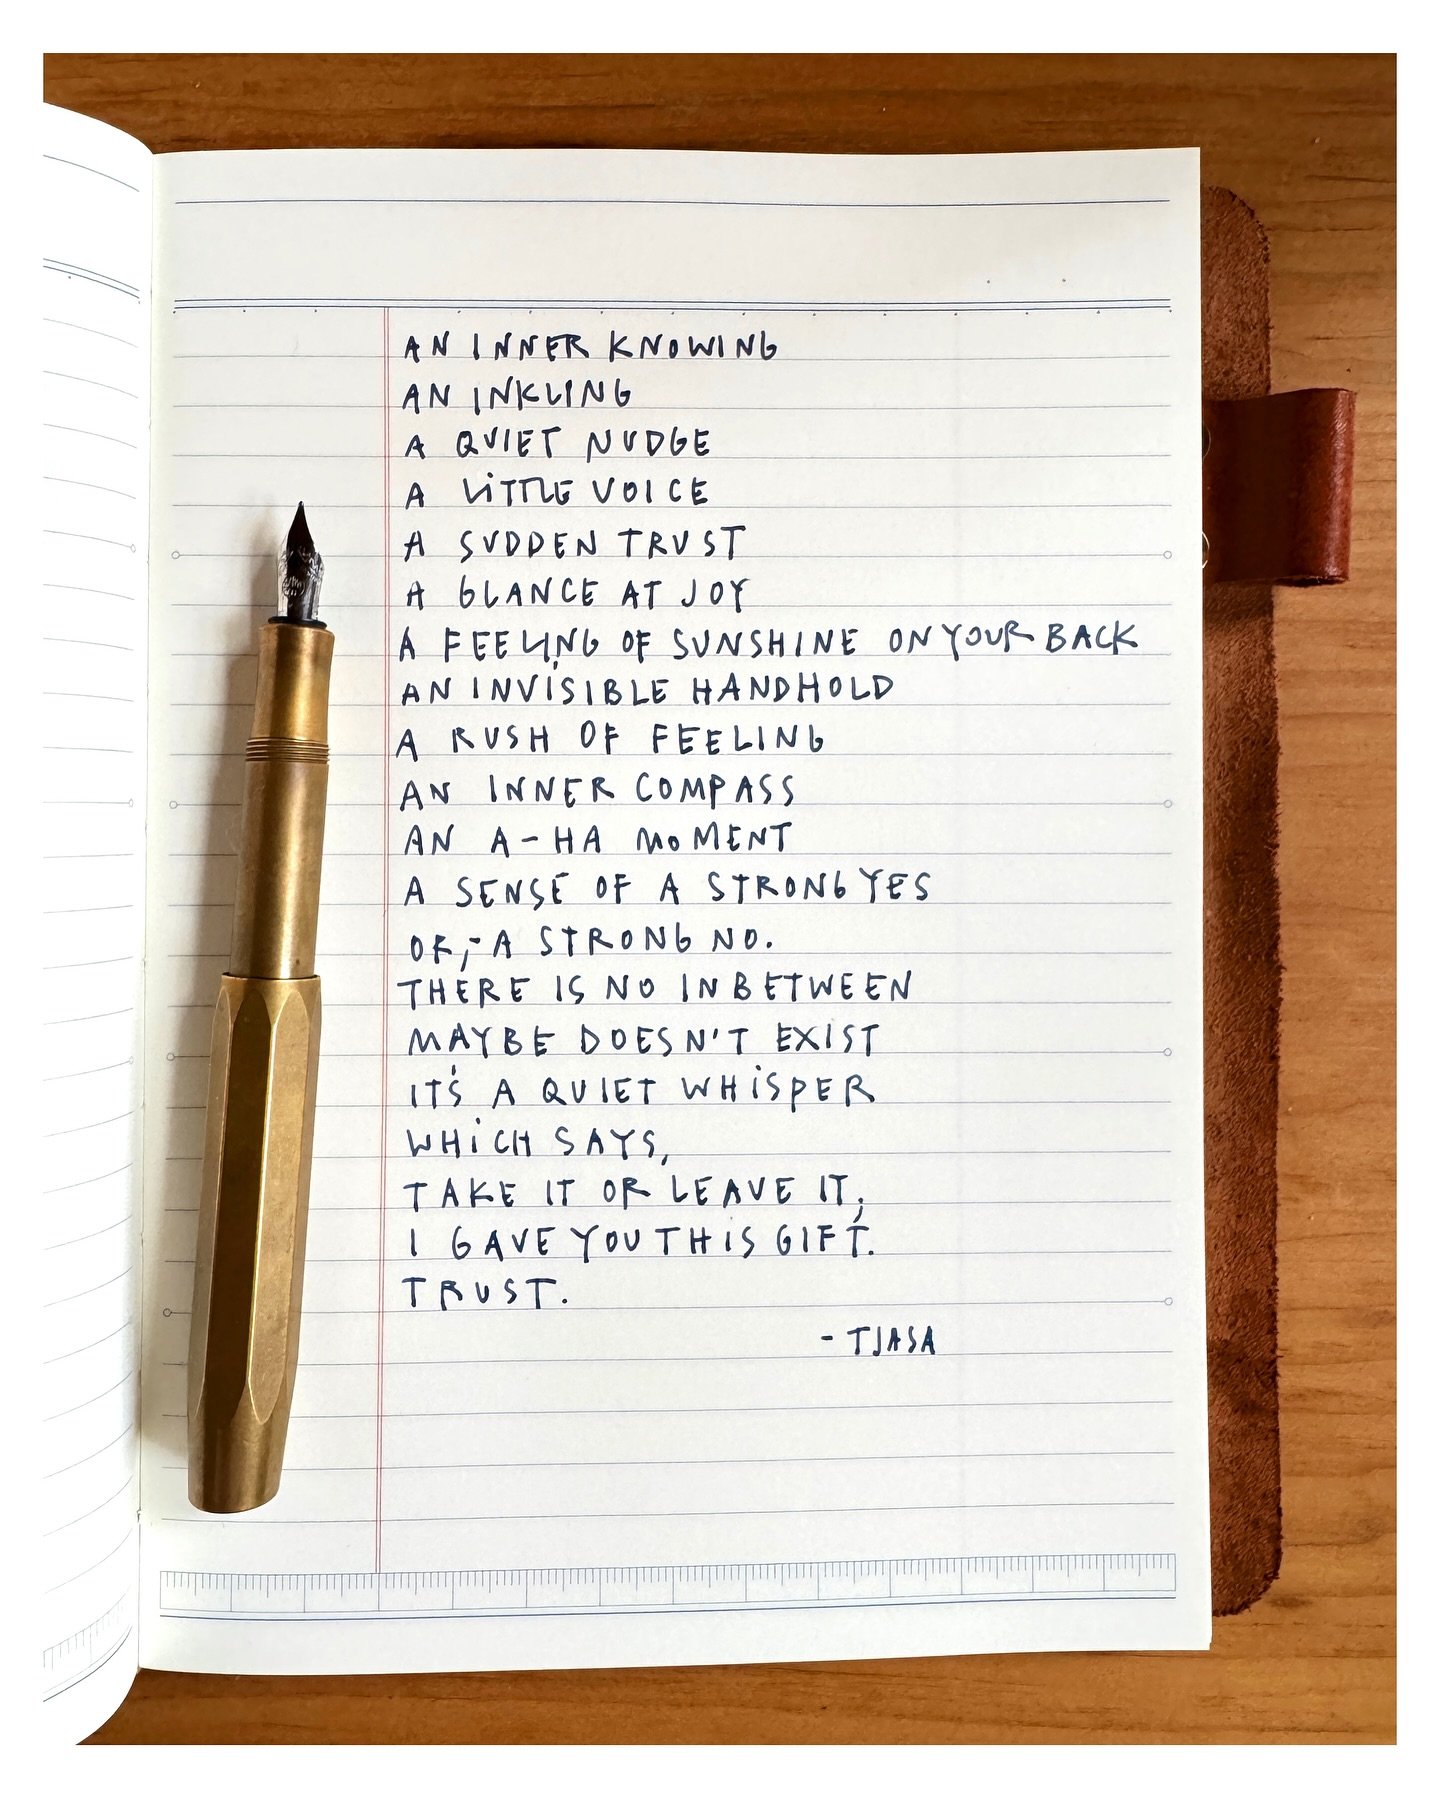 AN INNER KNOWING
AN INKLING
A QUIET NUDGE
A LiTTLE VOICE
A SUDDEN TRUST
A GLANCE AT JOY
A FEELING OF SUNSHINE ON YOUR BACK
AN INVISIBLE HANDHOLD
A RUSH OF FEELING
AN INNER COMPASS
AN A-HA MOMENT
A SENSE OF A STRONG YES
OR,- A STRONG NO.
THERE IS NO IN BETWEEN
MAYBE DOESN'T EXIST
IT'S A QUIET WHiSPER
WHiCH SAYS,
TAKE IT OR LEAVE IT,
I GAVE YOU THiS GIFT.
TRUST.
- TJASA